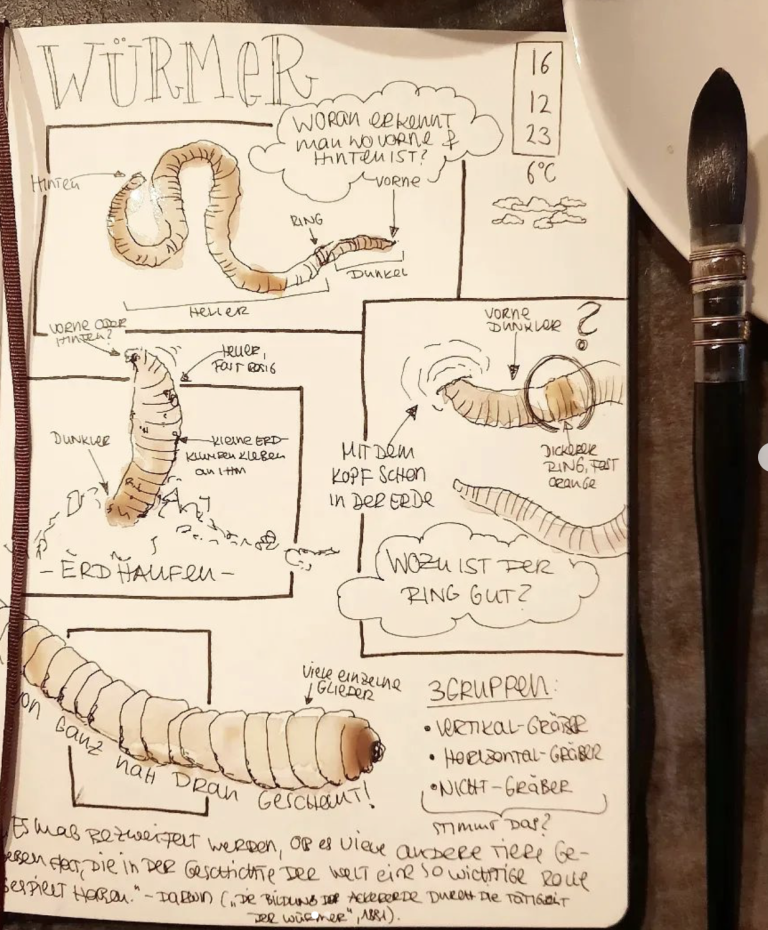 WÜRMER
16
12
23
6°C
WORAN ERKENNT
MAN WO VORNE &
HINTEN IST?
VORNE
HINTEN
RING
DUNKEL
HELLER
VORNE ODER
HINTEN?
HELLER,
FAST ROSIG
DUNKLER
KLEINE ERD-
KLUMPEN KLEBEN
AN IHM
-ERDHAUFEN-
VORNE
DUNKLER
?
MIT DEM
KOPF SCHON
IN DER ERDE
DICKERER
RING, FAST
ORANGE
WOZU IST DER
RING GUT?
VIELE EINZELNE
GLIEDER
VON GANZ NAH DRAN GESCHAUT!
3 GRUPPEN:
• VERTIKAL-GRÄBER
• HORIZONTAL-GRÄBER
• NICHT-GRÄBER
STIMMT DAS?
ES MAG BEZWEIFELT WERDEN, OB ES VIELE ANDERE TIERE GE-
GEBEN HAT, DIE IN DER GESCHICHTE DER WELT EINE SO WICHTIGE ROLLE
GESPIELT HABEN." - DARWIN („DIE BILDUNG DER ACKERERDE DURCH DIE TÄTIGKEIT
DER WÜRMER", 1881).